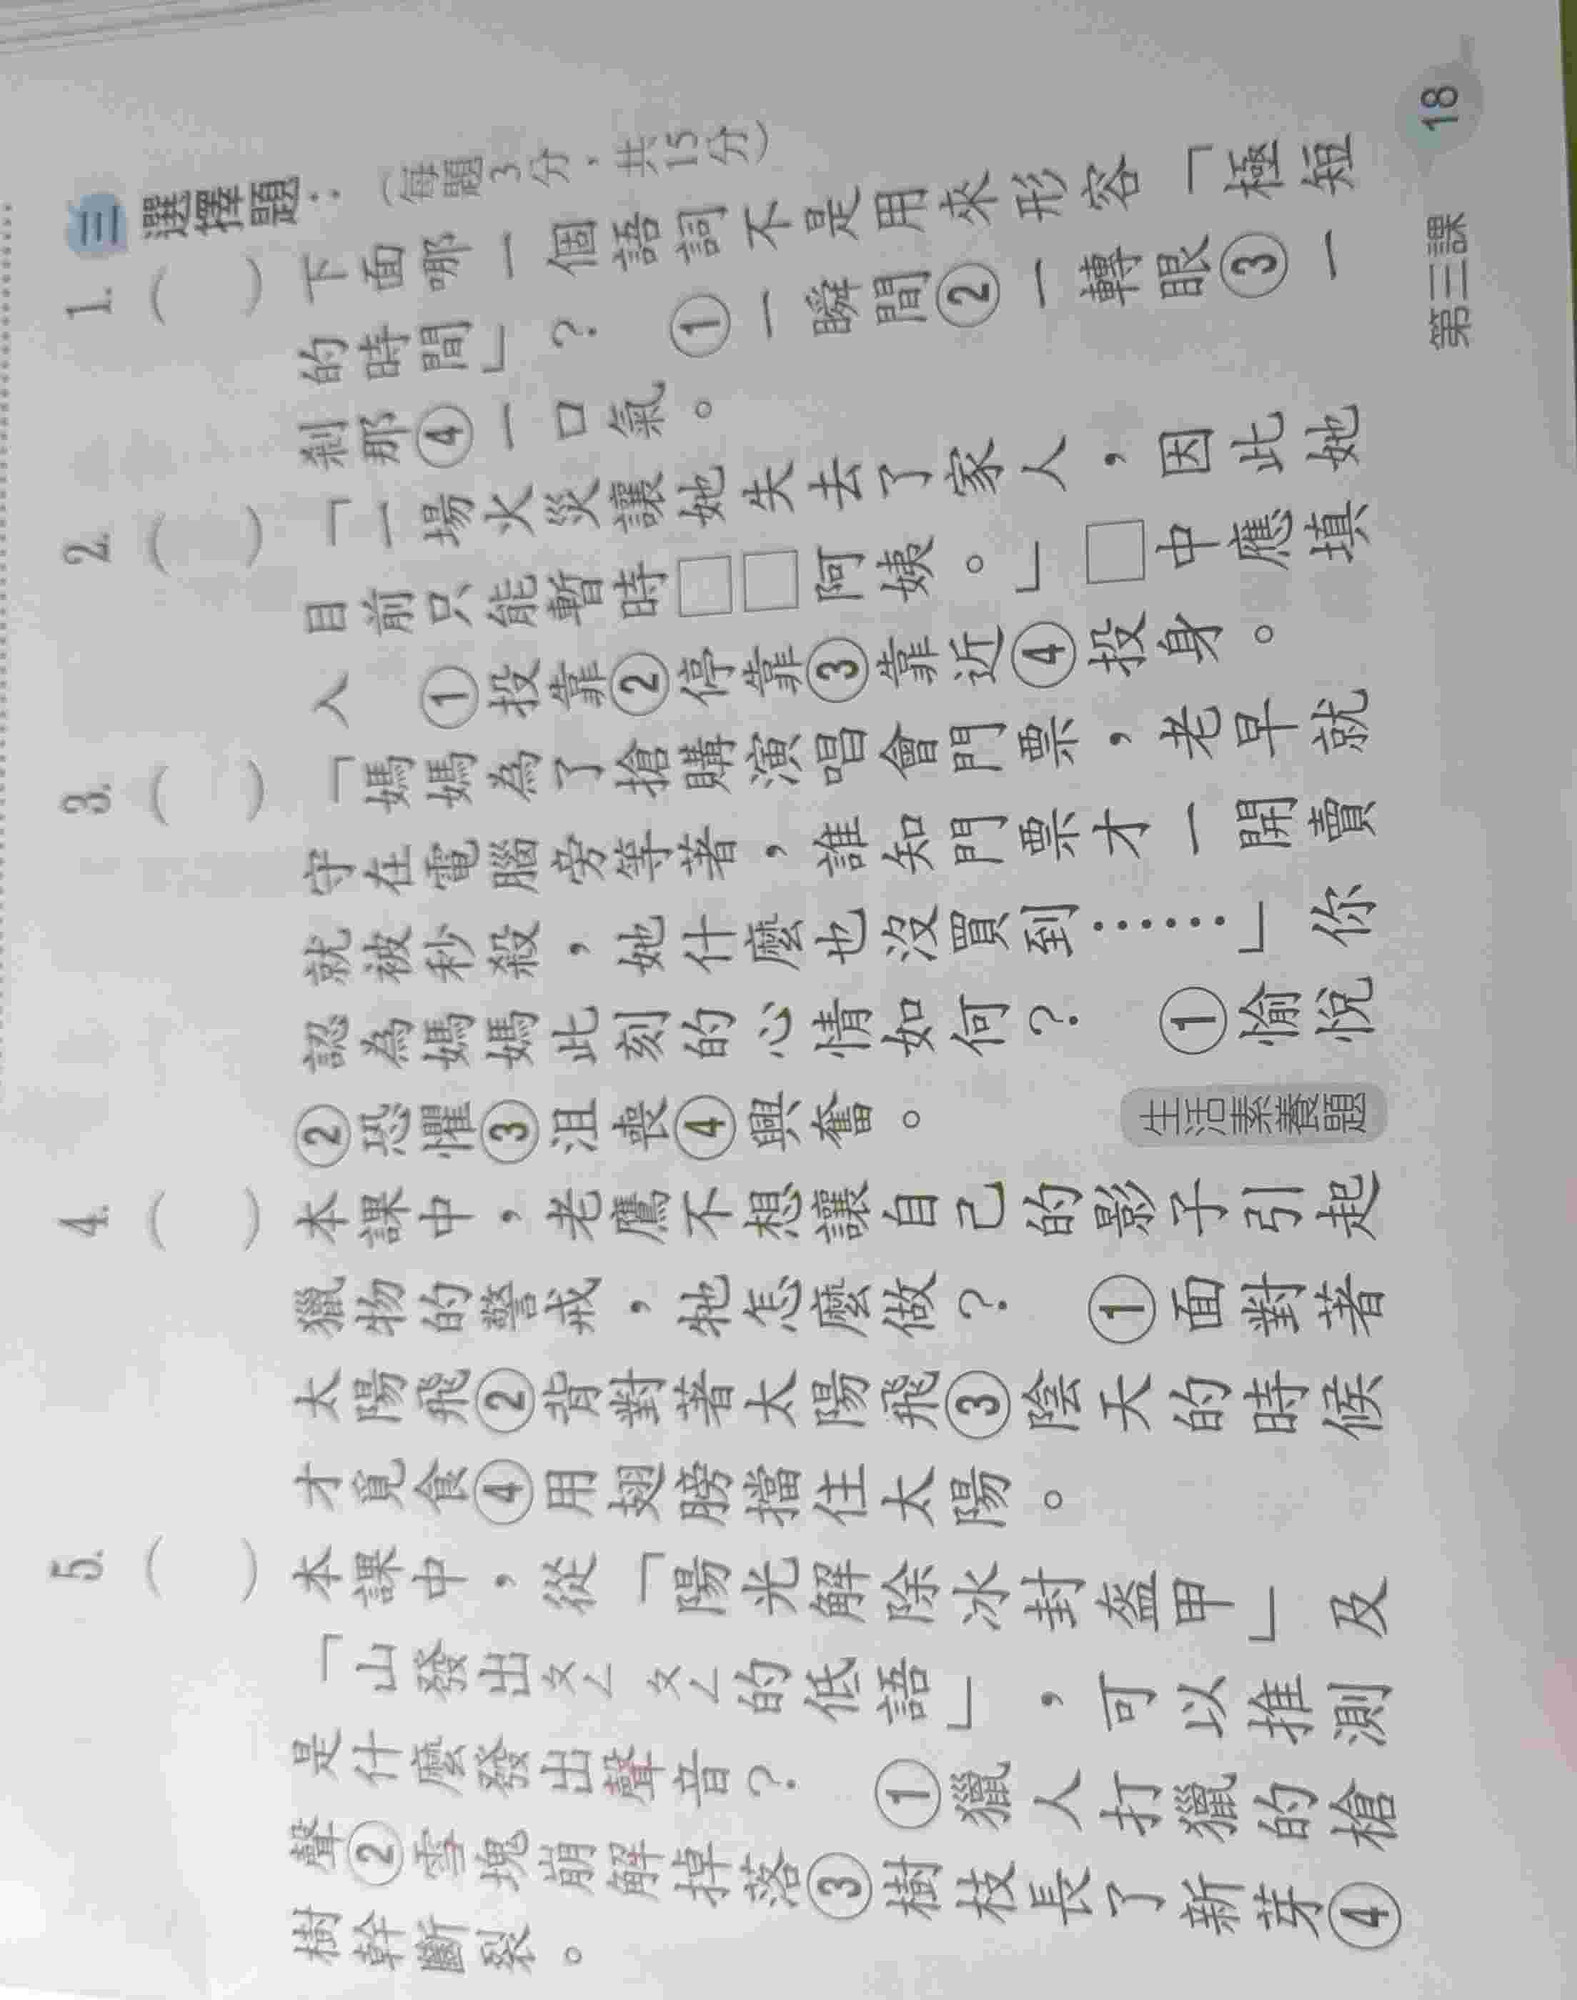 三 選擇題：（每題3分，共15分）
1.（ ）下面哪一個語詞不是用來形容「極短
的時間」？ ①一瞬間②一轉眼③一
剎那④一口氣。
2.（ ）「一場火災讓她失去了家人，因此她
目前只能暫時□□阿姨。」□中應填
入 ①投靠②停靠③靠近④投身。
3.（ ）「媽媽為了搶購演唱會門票，老早就
守在電腦旁等著，誰知門票才一開賣
就被秒殺，她什麼也沒買到……」你
認為媽媽此刻的心情如何？ ①愉悅
②恐懼③沮喪④興奮。 生活素養題
4.（ ）本課中，老鷹不想讓自己的影子引起
獵物的警戒，牠怎麼做？ ①面對著
太陽飛②背對著太陽飛③陰天的時候
才覓食④用翅膀擋住太陽。
5.（ ）本課中，從「陽光解除冰封盔甲」及
「山發出ㄆㄥ ㄆㄥ的低語」，可以推測
是什麼發出聲音？ ①獵人打獵的槍
聲②雪塊崩解掉落③樹枝長了新芽④
樹幹斷裂。
第三課 18